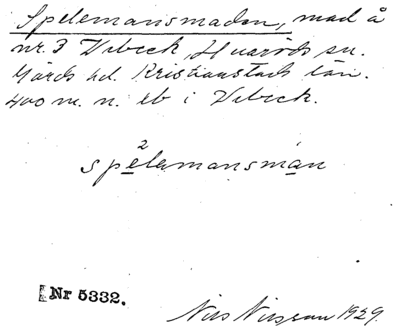 Spelemansmaden, mad å
nr. 3 Vibeck, Huaröds sn.
Gärds hd. Kristianstads län.
400 m. n. eb i Vibeck.
2
spelemansmán
Nr 5332.
Nils Nilsson 1929.